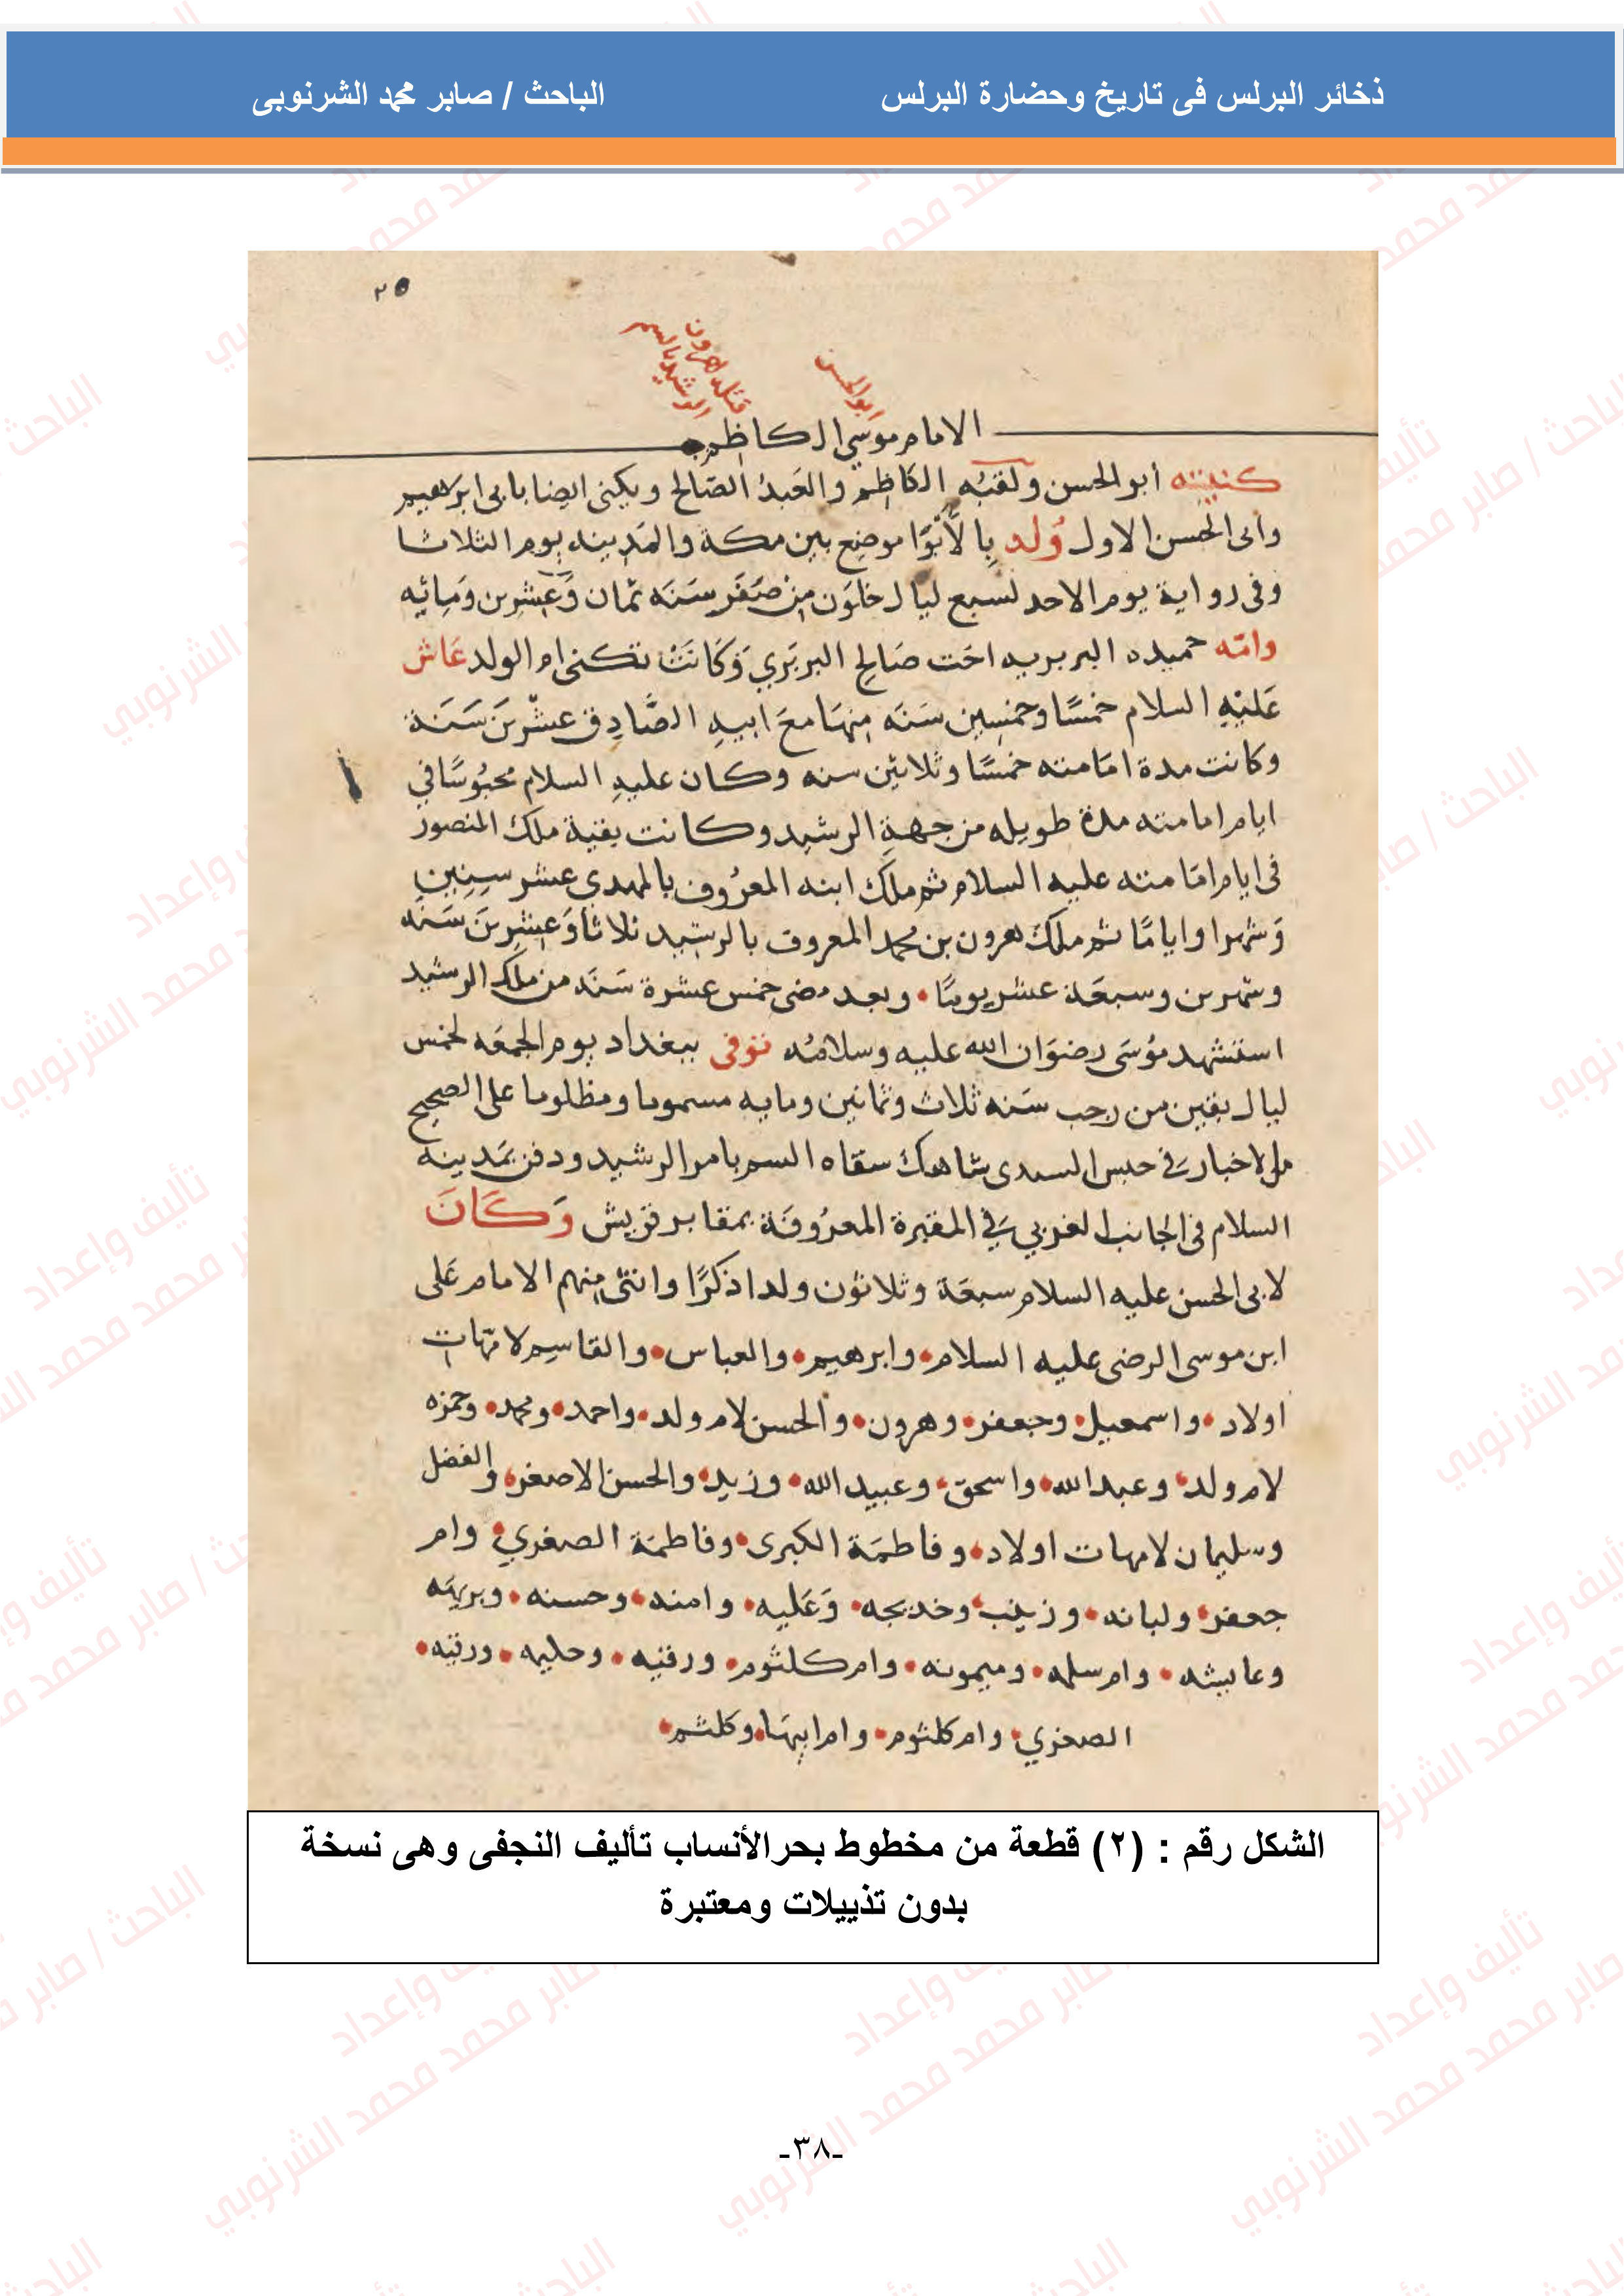 ذخائر البرلس فى تاريخ وحضارة البرلس
الباحث / صابر محمد الشرنوبى
٢٥
ابو الحسن
قتله هرون
الرشيد بالسم
الامام موسى الكاظم
كنيته أبو الحسن ولقبُه الكاظم والعَبدُ الصّالح ويكنى ايضا بابى ابرهيم
وابى الحسن الاول وُلد بِالأَبْوَا موضع بين مكة والمَدينه يوم الثلاثا
وفى رواية يوم الاحد لسبع ليال خلَون من صَفَر سَنَه ثمان وَعشرين وَمِائيه
وامّه حميده البربريه اخت صَالح البربَري وَكَانَتْ تكنى ام الولد عَاش
عَليْهِ السلام خمسًا وخمسين سَنَه منهَا معَ ابيهِ الصَّادِق عِشْرينَ سَنَة
وكانت مدة امَامته خمسًا وثلاثين سنه وكان عليهِ السلام محبُوسًا في
ايام امامته مدة طويله من جهة الرشيد وكانت بقية ملك المنصور
فى ايام امَامته عليه السلام ثم ملَك ابنه المعرُوف بالمهدى عشر سِنِين
وَشهرا وايامًا ثم ملك هرون بن محمد المعروف بالرشيد ثلاثا وَعشرينَ سَنَه
وشهرين وسبعَة عشر يومًا • وبعد مضى خمس عشرة سَنَه من ملك الرشيد
استشهد مُوسَى رضوَان الله عليه وسلامُه توفى ببغداد يوم الجمعَه لخمس
ليال بقين من رجب سَنه ثلاث وثمانين ومايه مسموما ومظلوما على الصحيح
من الاخبار في حبس السندى شاهك سقاه السم بامر الرشيد ودفن بمَدينة
السلام فى الجانب الغربي في المقبرة المعرُوفَة بمقابر قريش وَكَانَ
لابى الحسن عليه السلام سبعَة وثلاثون ولدا ذكرًا وانثى منهم الامام عَلى
ابن موسى الرضى عليه السلام • وابرهيم • والعباس • والقاسِم لامّهات
اولاد • واسمعيل • وجعفر • وهرون • والحسن لام ولد • واحمد • ومحمد • وحمزه
لام ولد • وعبد الله • واسحق • وعبيد الله • وزيد • والحسن الاصغر • والفضل
وسليمان لامهات اولاد • وفاطمَة الكبرى • وفاطمَة الصغري • وام
جعفر • ولبانه • وزينب • وخديجه • وَعَليه • وامنه • وحسنه • وبريهَه
وعايشه • وام سلمه • وميمونه • وام كلثوم • ورقيه • وحليمه • ورقيه •
الصغري • وام كلثوم • وام ابيهَا • وكلثم •
الشكل رقم : (٢) قطعة من مخطوط بحر الأنساب تأليف النجفى وهى نسخة
بدون تذييلات ومعتبرة
-٣٨-
تأليف وإعداد
الباحث / صابر محمد محمد الشرنوبي